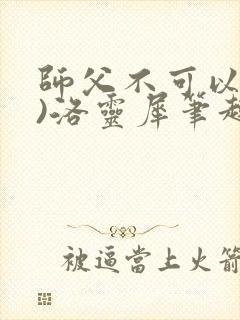 師父不可以
)洛靈犀筆趣
被逼當上火箭